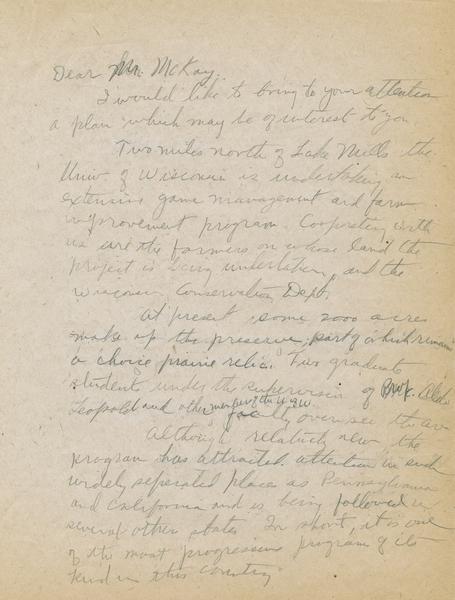 Dear Mr. McKay:
I would like to bring to your attention
a plan which may be of interest to you
Two miles north of Lake Mills the
Univ. of Wisconsin is undertaking an
extensive game management and farm
improvement program. Cooperating with
us are the farmers on whose land the
project is being undertaken, and the
Wisconsin Conservation Dept.
At present some 2000 acres
make up the preserve, part of which remains
a choice prairie relic. Two graduate
student under the supervision of Prof. Aldo
Leopold and other men of the U.W.
oversee the
Although relatively new the
program has attracted attention in such
widely seperated places as Pennsylvania
and California and is being followed in
several other states. In short, it is one
of the most progressive programs of its
kind in this country